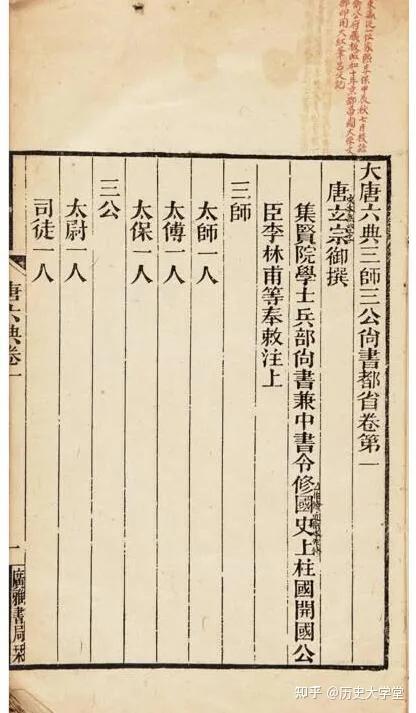 大唐六典三師三公尚書都省卷第一
唐玄宗御撰
集賢院學士兵部尚書兼中書令修國史上柱國開國公
臣李林甫等奉敕注上
三師
太師一人
太傅一人
太保一人
三公
太尉一人
司徒一人
唐六典卷一
一
廣雅書局栞
知乎 @历史大学堂